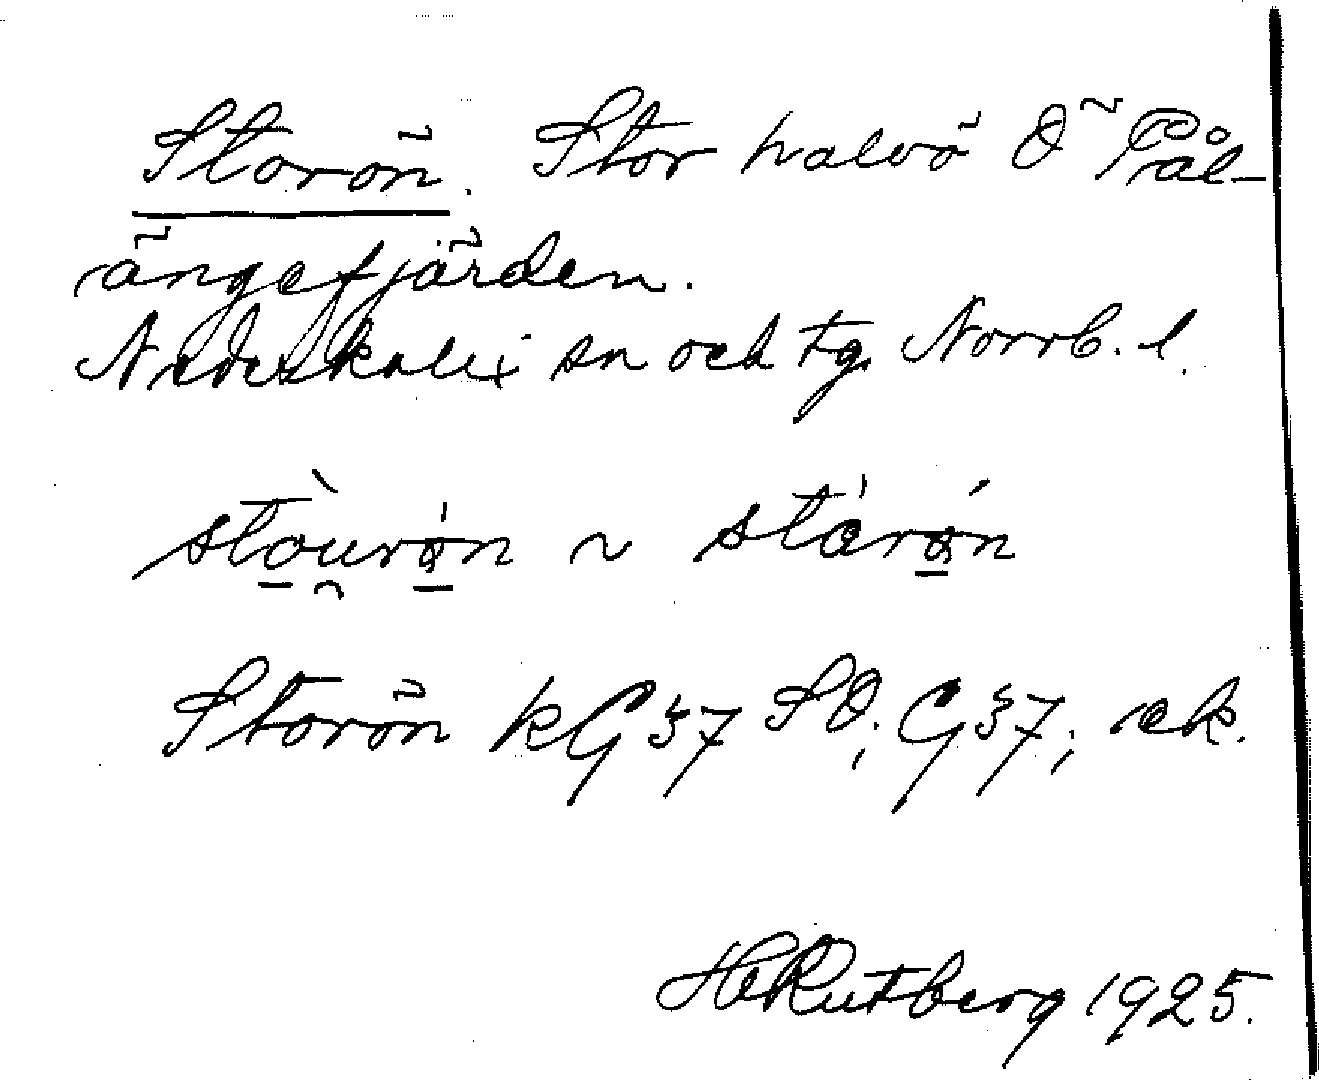 Storön. Stor halvö Ö Pål-
ängefjärden.
Nederkalix sn och tg. Norrb. l.
stòu̯rø̀n ~ stórøń
Storön kG37 SO; G37; ek.
H Rutberg 1925.